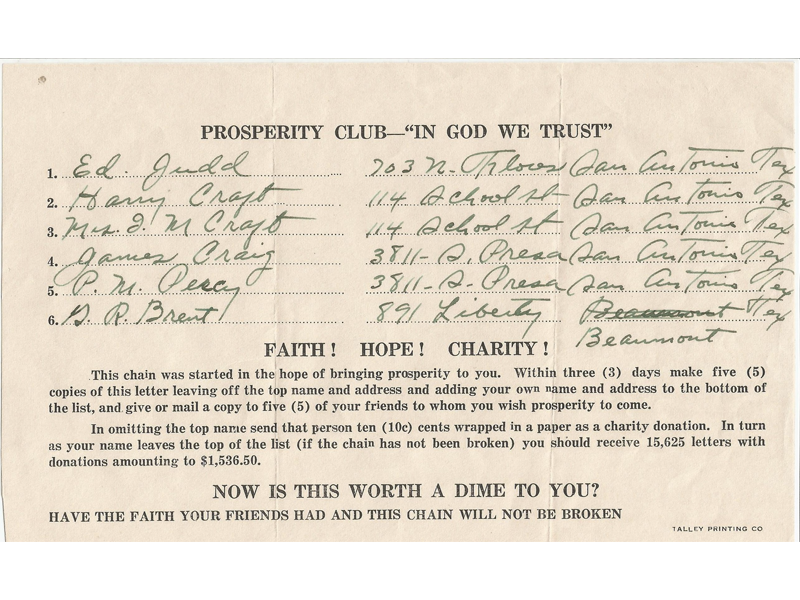 PROSPERITY CLUB—"IN GOD WE TRUST"
1. Ed. Judd 703 N. Flores San Antonio Tex
2. Harry Craft 114 School St San Antonio Tex
3. Mrs. J. M Craft 114 School St San Antonio Tex
4. James Craig 3811- S. Presa San Antonio Tex
5. P. M. Percy 3811- S- Presa San Antonio Tex
6. G. R. Brent 891 Liberty Beaumont Tex
Beaumont
FAITH! HOPE! CHARITY!
This chain was started in the hope of bringing prosperity to you. Within three (3) days make five (5)
copies of this letter leaving off the top name and address and adding your own name and address to the bottom of
the list, and give or mail a copy to five (5) of your friends to whom you wish prosperity to come.
In omitting the top name send that person ten (10c) cents wrapped in a paper as a charity donation. In turn
as your name leaves the top of the list (if the chain has not been broken) you should receive 15,625 letters with
donations amounting to $1,536.50.
NOW IS THIS WORTH A DIME TO YOU?
HAVE THE FAITH YOUR FRIENDS HAD AND THIS CHAIN WILL NOT BE BROKEN
TALLEY PRINTING CO